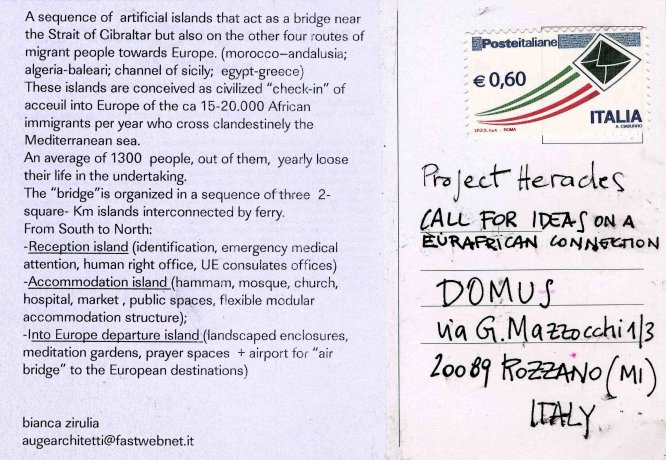 A sequence of artificial islands that act as a bridge near
the Strait of Gibraltar but also on the other four routes of
migrant people towards Europe. (morocco–andalusia;
algeria-baleari; channel of sicily; egypt-greece)
These islands are conceived as civilized “check-in” of
acceuil into Europe of the ca 15-20.000 African
immigrants per year who cross clandestinely the
Mediterranean sea.
An average of 1300 people, out of them, yearly loose
their life in the undertaking.
The “bridge”is organized in a sequence of three 2-
square- Km islands interconnected by ferry.
From South to North:
-Reception island (identification, emergency medical
attention, human right office, UE consulates offices)
-Accommodation island (hammam, mosque, church,
hospital, market , public spaces, flexible modular
accommodation structure);
-Into Europe departure island (landscaped enclosures,
meditation gardens, prayer spaces + airport for “air
bridge” to the European destinations)
bianca zirulia
augearchitetti@fastwebnet.it
Posteitaliane
€ 0,60
ITALIA
I.P.Z.S. S.p.A. - ROMA
A. CIABURRO
Project Heracles
CALL FOR IDEAS ON A
EURAFRICAN CONNECTION
DOMUS
via G. Mazzocchi 1/3
20089 ROZZANO (MI)
ITALY